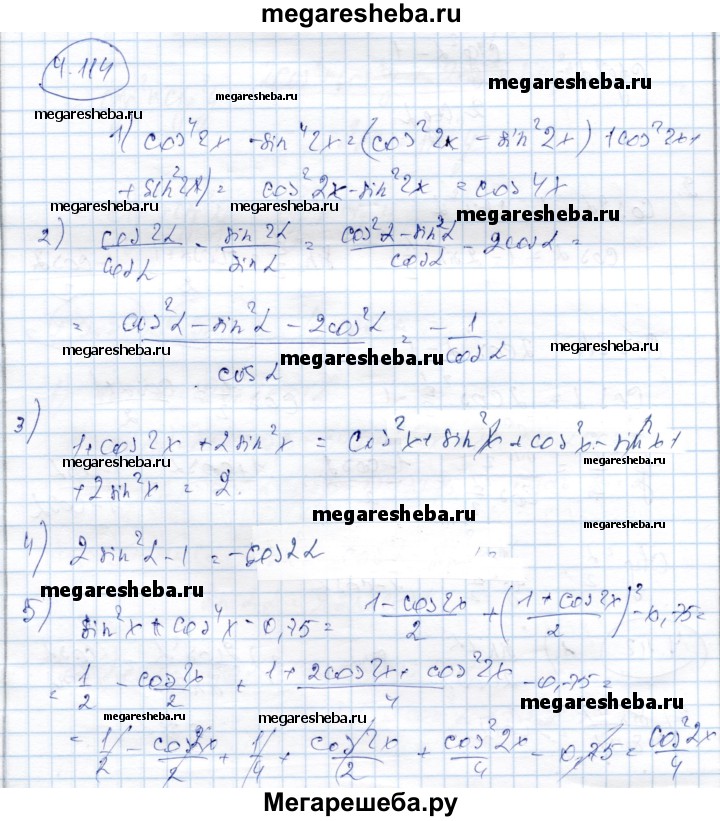 megaresheba.ru
4.114
megaresheba.ru
megaresheba.ru
megaresheba.ru
1) cos⁴2x - sin⁴2x = (cos²2x - sin²2x)(cos²2x +
+ sin²2x) = cos²2x - sin²2x = cos4x
megaresheba.ru
megaresheba.ru
megaresheba.ru
2) cos2α/cosα - sin2α/sinα = (cos²α - sin²α)/cosα - 2cosα =
= (cos²α - sin²α - 2cos²α)/cosα = -1/cosα
megaresheba.ru
megaresheba.ru
megaresheba.ru
3)
1 + cos2x + 2sin²x = cos²x + sin²x + cos²x - sin²x +
megaresheba.ru
megaresheba.ru
+ 2sin²x = 2.
megaresheba.ru
4) 2sin²α - 1 = -cos2α
megaresheba.ru
megaresheba.ru
5) sin²x + cos⁴x - 0,75 = (1 - cos2x)/2 + ((1 + cos2x)/2)² - 0,75 =
= 1/2 - cos2x/2 + (1 + 2cos2x + cos²2x)/4 - 0,75 =
megaresheba.ru
megaresheba.ru
= 1/2 - cos2x/2 + 1/4 + cos2x/2 + cos²2x/4 - 0,75 = cos²2x/4
megaresheba.ru
Мегарешеба.ру